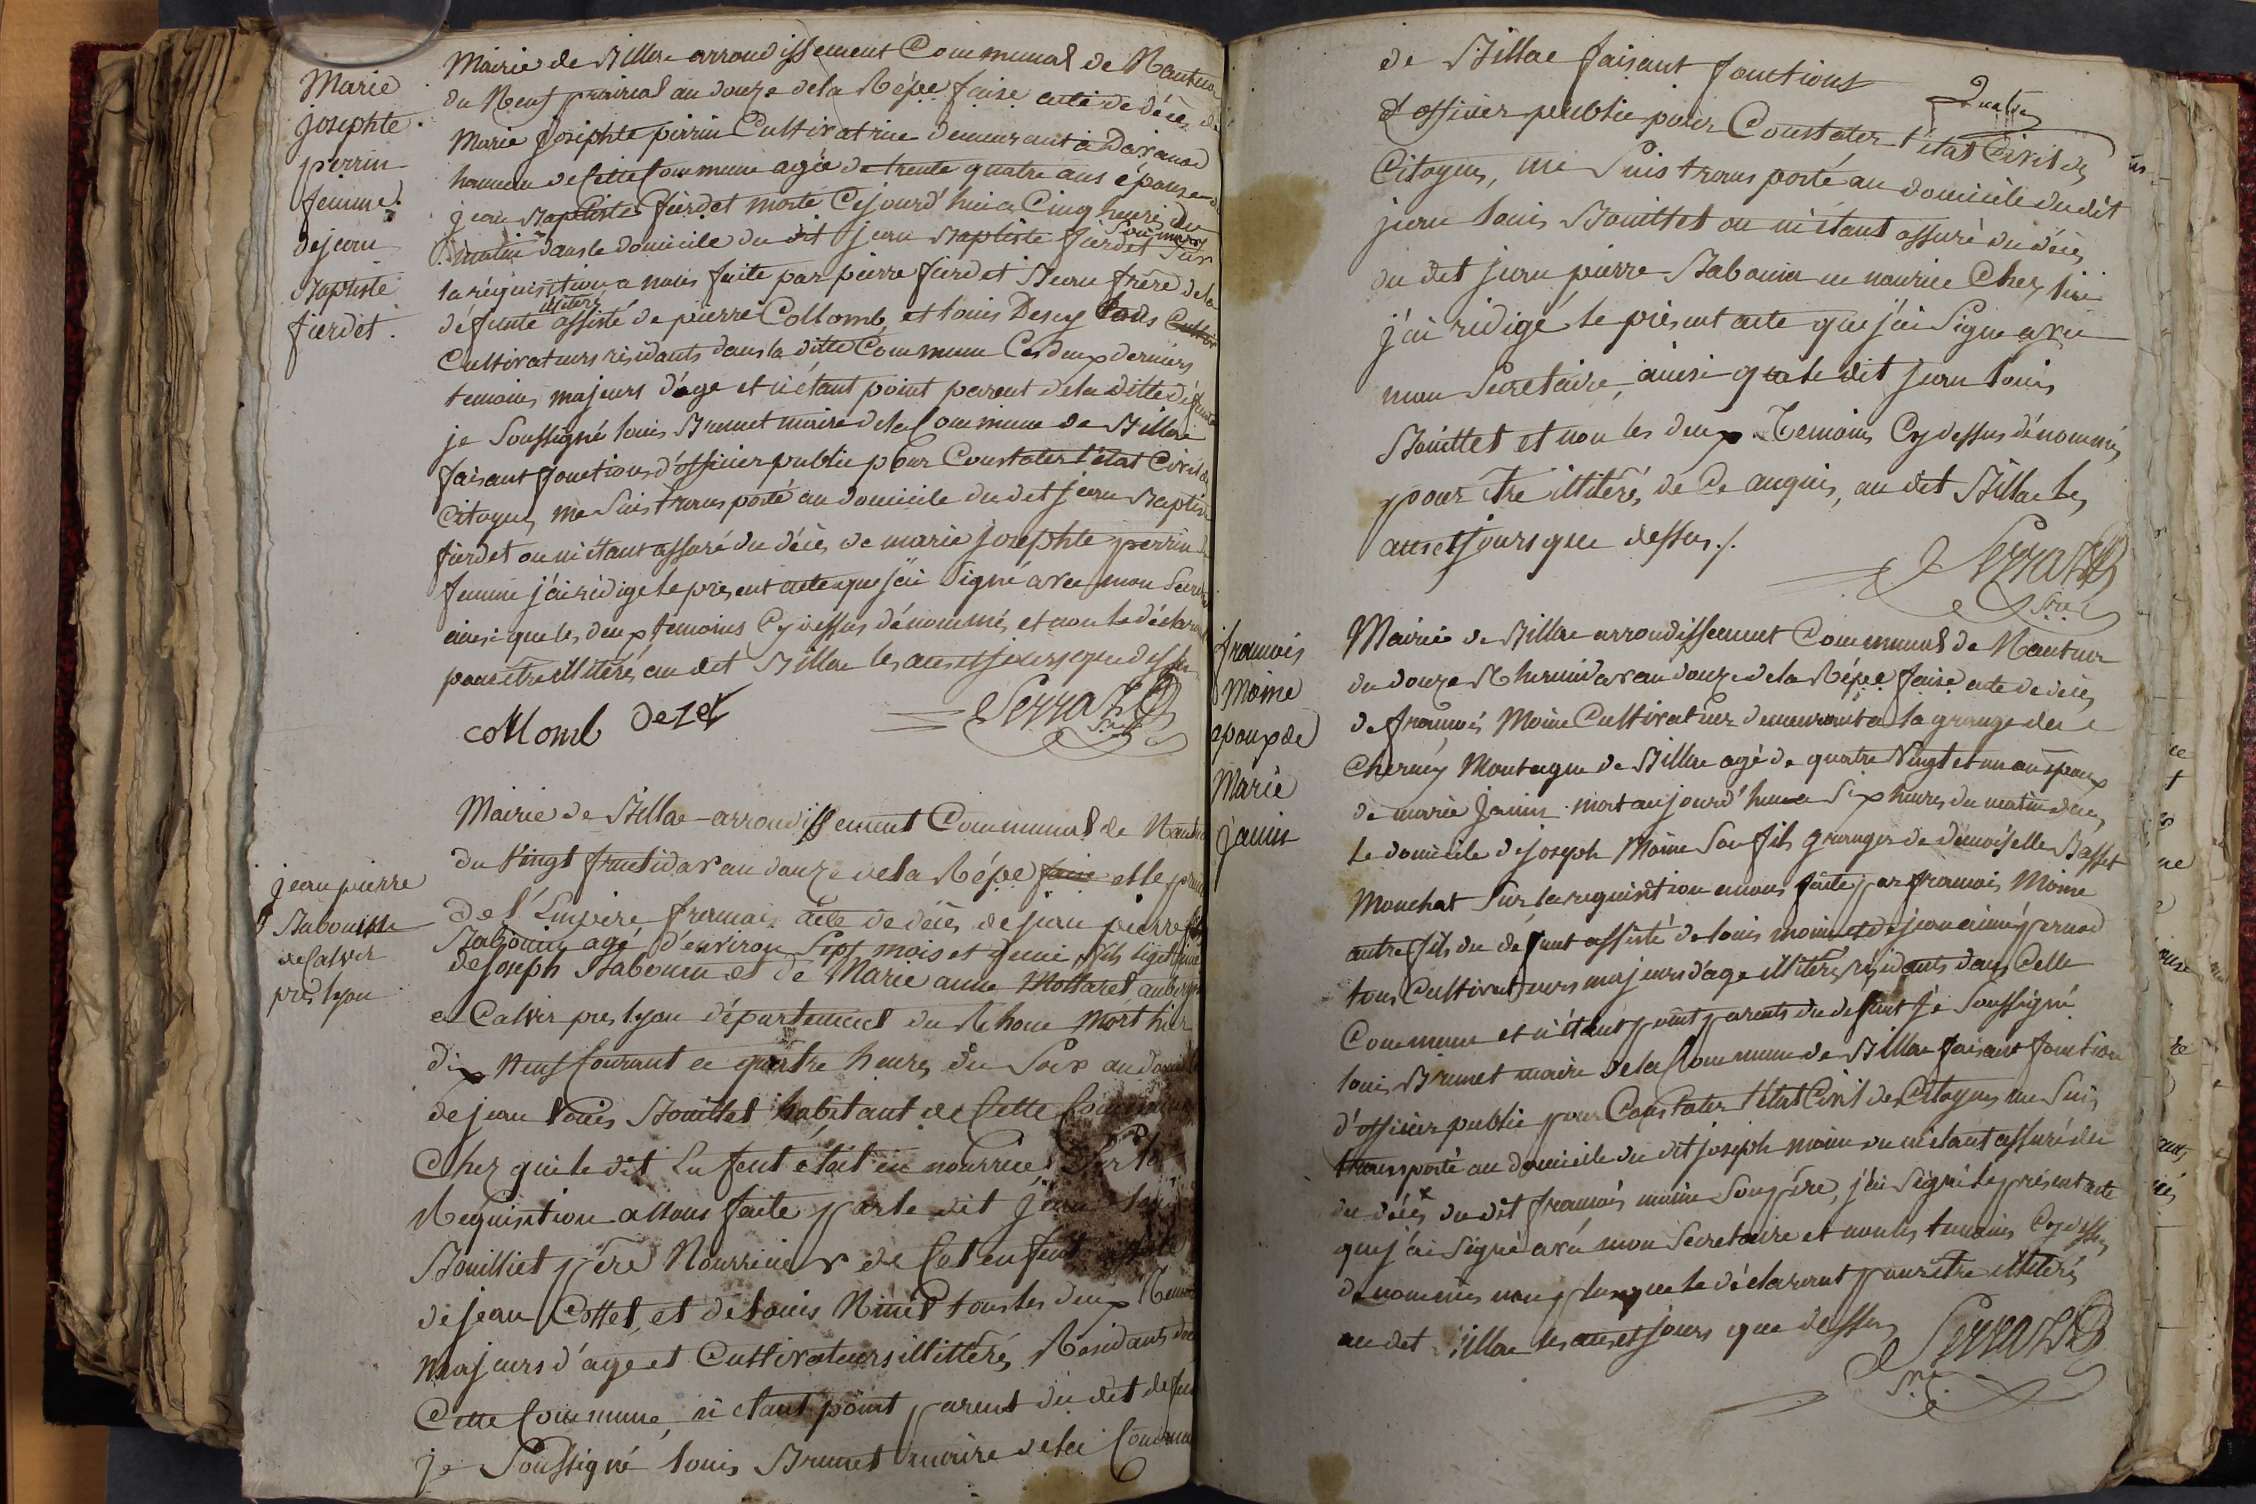 Marie
josephte
perrin
femme
dejean
Baptiste
fierdet.
Mairie de Billac arrondissement Communal de Nantua
du Neuf prairial an douze dela Répe. faise. acte de décès de
Marie josephte perrin Cultivatrice demeurant à Davanod
hameau de Cette Commune agée de trente quatre ans épouse de
jean Baptiste fierdet morte Cejourd'hui a Cinq heures du
matin dans le domicile du dit jean Baptiste fierdet son mary Sur
la réquisition a nous faite par pierre fierdet Beau frère dela
défunte illitéré assisté de pierre Collomb et louis Desey tous
Cultivateurs résidants dans la ditte Commune Ces deux derniers
temoins majeurs d'age et n'étant point parent dela ditte défunte
je Soussigné louis Brunet maire dela Commune de Billac
faisant fonctions d'officier public pour Constater l'état Civil des
Citoyens me Suis transporté au domicile du dit jean Baptiste
fierdet ou m'étant assuré du décès de marie josephte perrin sa
femme j'ai rédigé le présent acte que j'ai Signé avec mon Secretaire
ainsi que les deux temoins Cy dessus dénommés et non le déclarant
pour être illitéré, au dit Billac les an et jours que dessus
collomb Dezel
Serra
Sre.
jean pierre
Babouin
de Calvir
près lyon
Mairie de Billac arrondissement Communal de Nantua
du Vingt fructidor an douze de la Répe et le premier
de l'Empire français acte de décès de jean pierre
Babouin agé d'environ Sept mois et demi, fils légitime
de Joseph Babouin et de Marie anne Mottaret
a Calvir près lyon département du Rhone mort hier
dix neuf Courant a quatre heures du Soir au domicile
de jean louis Bouillet habitant de Cette Commune
Chez qui le dit Enfent était en nourrice Sur la
Requisition a Nous faite par le dit jean louis
Bouilliet père Nourricier de Cet enfent assisté
de jean Cottet, et de louis Ninet tous les deux Temoins
majeurs d'age et Cultivateurs illittérés Résidants dans
Cette Commune, n'étant point parent du dit defunt
je Soussigné louis Brunet maire dela Commune
de Billac faisant fonctions
d'officier public pour Constater l'état Civil des
Citoyens, me Suis transporté au domicile du dit
jean louis Bouillet ou m'étant assuré du décès
du dit jean pierre Babouin en nourrice Chez lui
j'ai rédigé le présent acte que j'ai Signé avec
mon Secretaire, ainsi que le dit jean louis
Bouillet et non les deux Temoins Cy dessus dénommés
pour être illitérés, de Ce anquis, au dit Billac les
an et jours que dessus ./.
Serra
Sre
françois
Moine
epoux de
Marie
janin
Mairie de Billac arrondissement Communal de Nantua
du douze Thermidor an douze de la Répe. faise. acte de décès
de françois Moine Cultivateur demeurant a la grange de
Cherney Montagne de Billac agé de quatre Vingt et un ans epoux
de marie Janin mort aujourd'hui a Six heures du matin dans
le domicile de joseph Moine Son fils granger de demoiselle Basset
Mouchat Sur la requisition a nous faite par françois Moine
autre fils du défunt assisté de louis moine et de jean aimé pernod
tous Cultivateurs majeurs d'age illitérés résidants dans Cette
Commune et n'étant point parents du defunt je Soussigné
louis Brunet maire dela Commune de Billac faisant fonction
d'officier public pour Constater l'état Civil des Citoyens me Suis
transporté au domicile du dit joseph moine ou m'étant assuré du
du décès du dit françois moine Son père, j'ai Signé le présent acte
que j'ai Signé avec mon Secretaire et non les temoins Cy dessus
denommés non plus que le déclarant pour être illitérés
au dit Billac les an et jours que dessus
Serra
Sre.